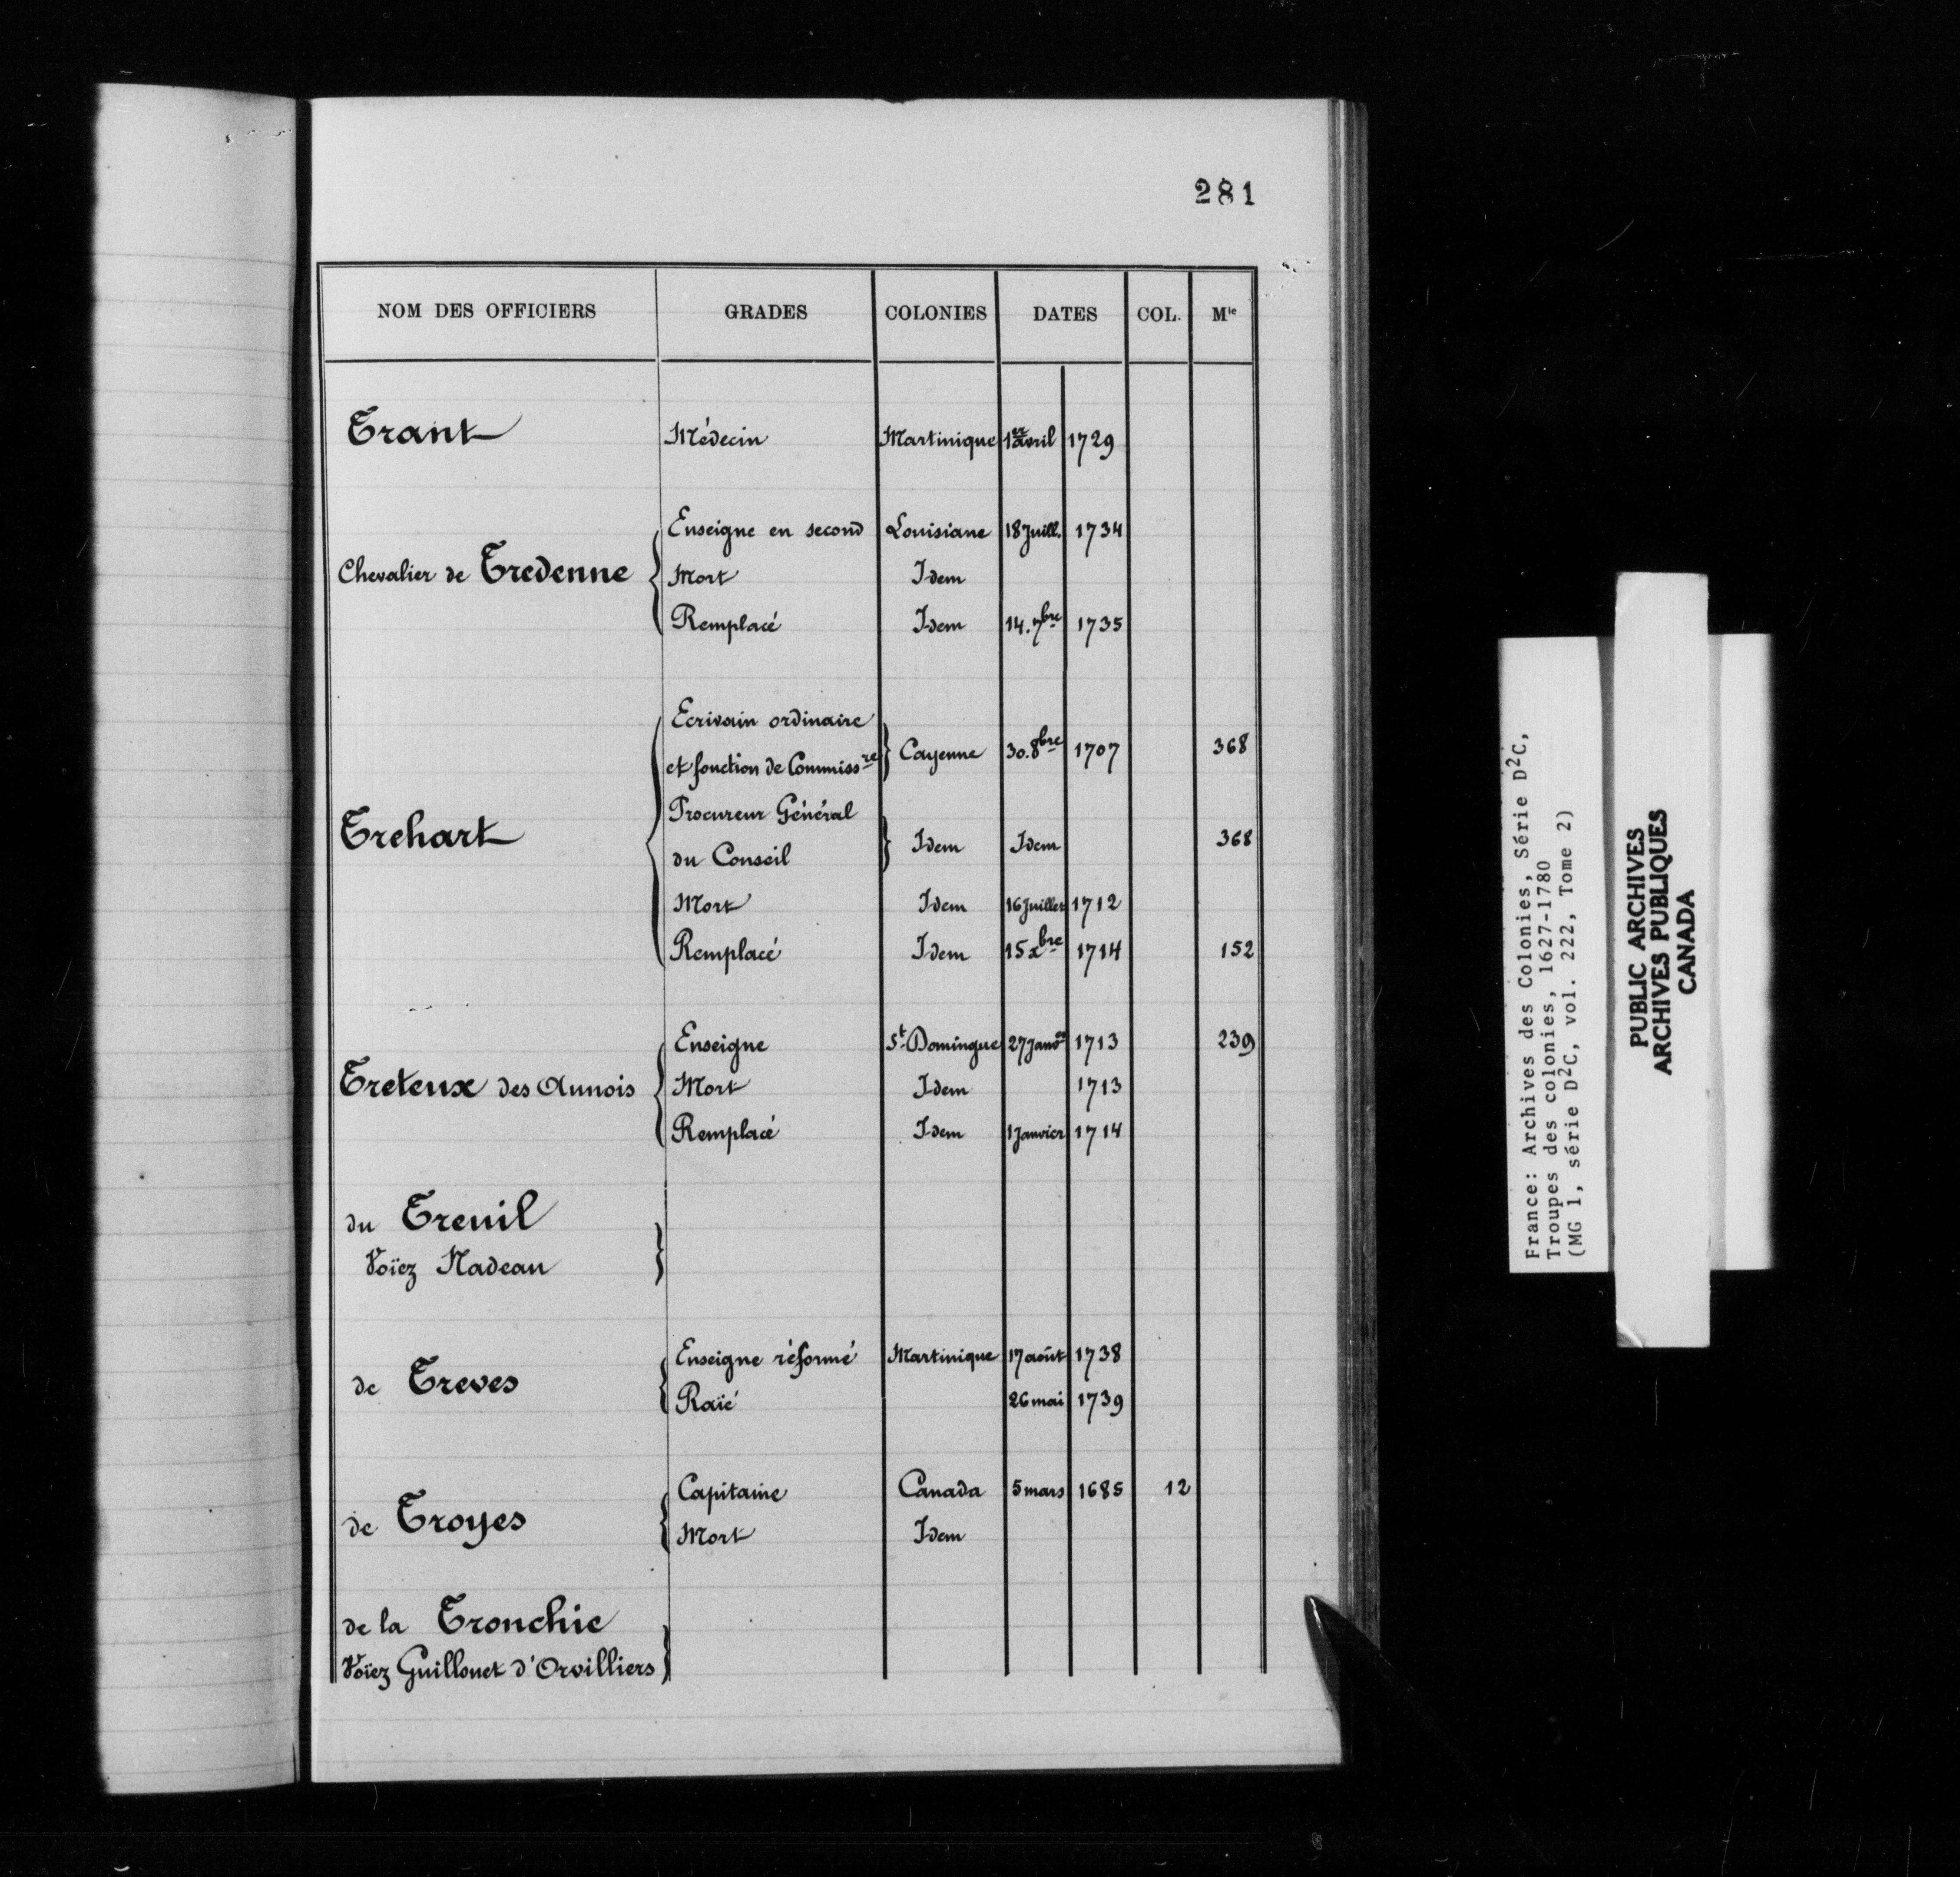 281
NOM DES OFFICIERS GRADES COLONIES DATES COL. Mle
Trant Médecin Martinique 1er avril 1729
Enseigne en second Louisiane 18 Juill. 1734
Chevalier de Tredenne Mort Idem
Remplacé Idem 14. 7bre 1735
Ecrivain ordinaire
et fonction de Commissre Cayenne 30. 8bre 1707 368
Procureur Général
Trehart
du Conseil Idem Idem 368
Mort Idem 16 Juillet 1712
Remplacé Idem 15 xbre 1714 152
Enseigne St Domingue 27 Janv 1713 239
Treteux des Aunois Mort Idem 1713
Remplacé Idem 1 Janvier 1714
du Treuil
Voïez Nadeau
Enseigne réformé Martinique 17 août 1738
de Treves
Raïé 26 mai 1739
Capitaine Canada 5 mars 1685 12
de Troyes
Mort Idem
de la Tronchie
Voïez Guillouet d'Orvilliers
France: Archives des Colonies, Série D2C,
Troupes des colonies, 1627-1780
(MG 1, série D2C, vol. 222, Tome 2)
PUBLIC ARCHIVES
ARCHIVES PUBLIQUES
CANADA